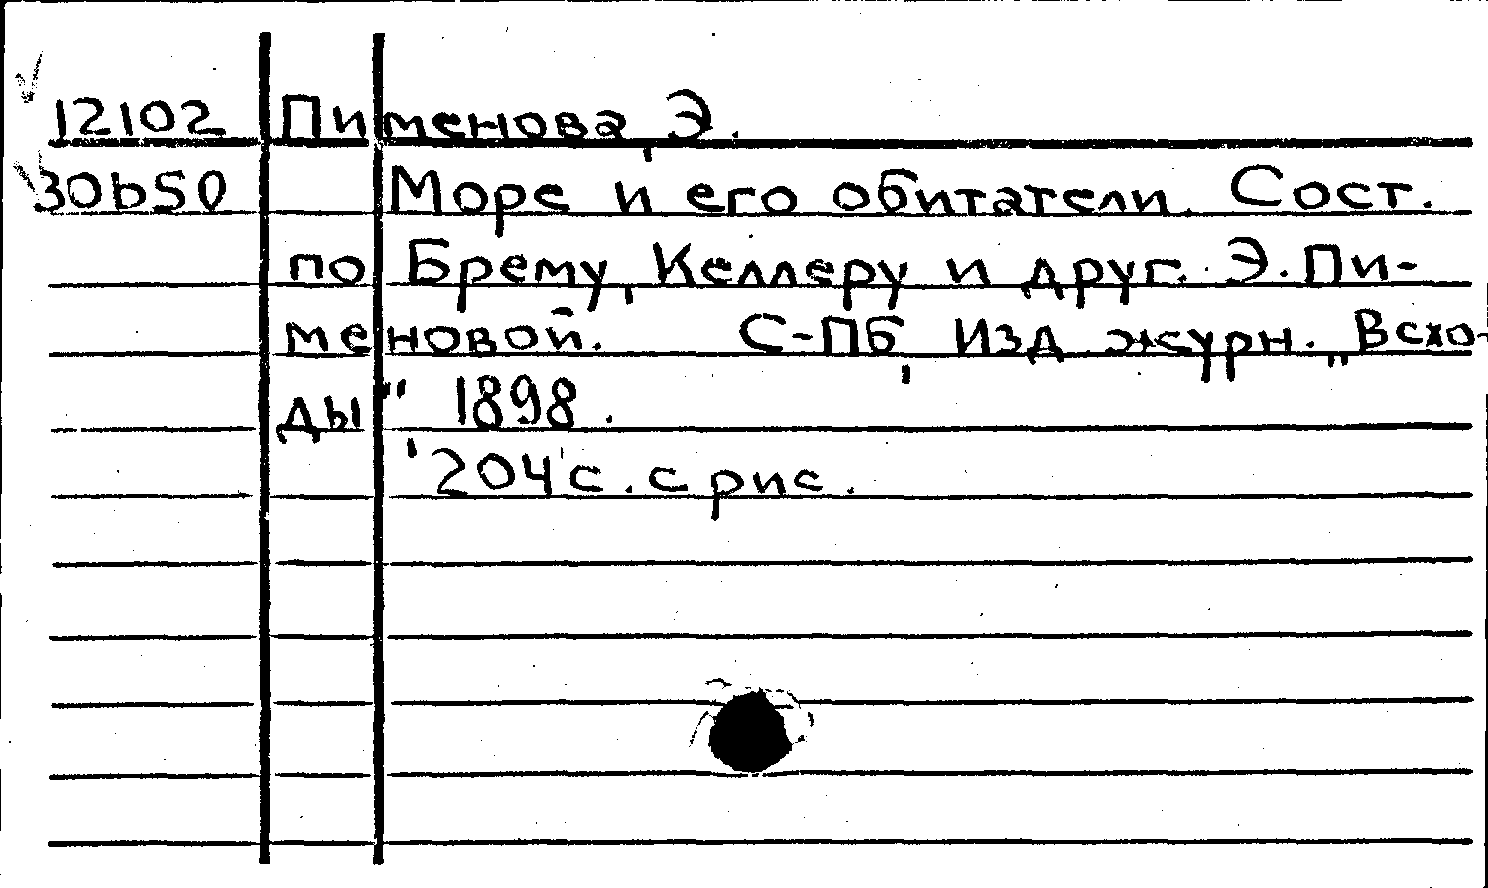 12102 Пименова, Э.
30b50 Море и его обитатели. Сост.
по Брему, Келлеру и друг. Э. Пи-
меновой. С-ПБ, Изд журн. „Всхо-
ды" 1898.
204 с. с рис.